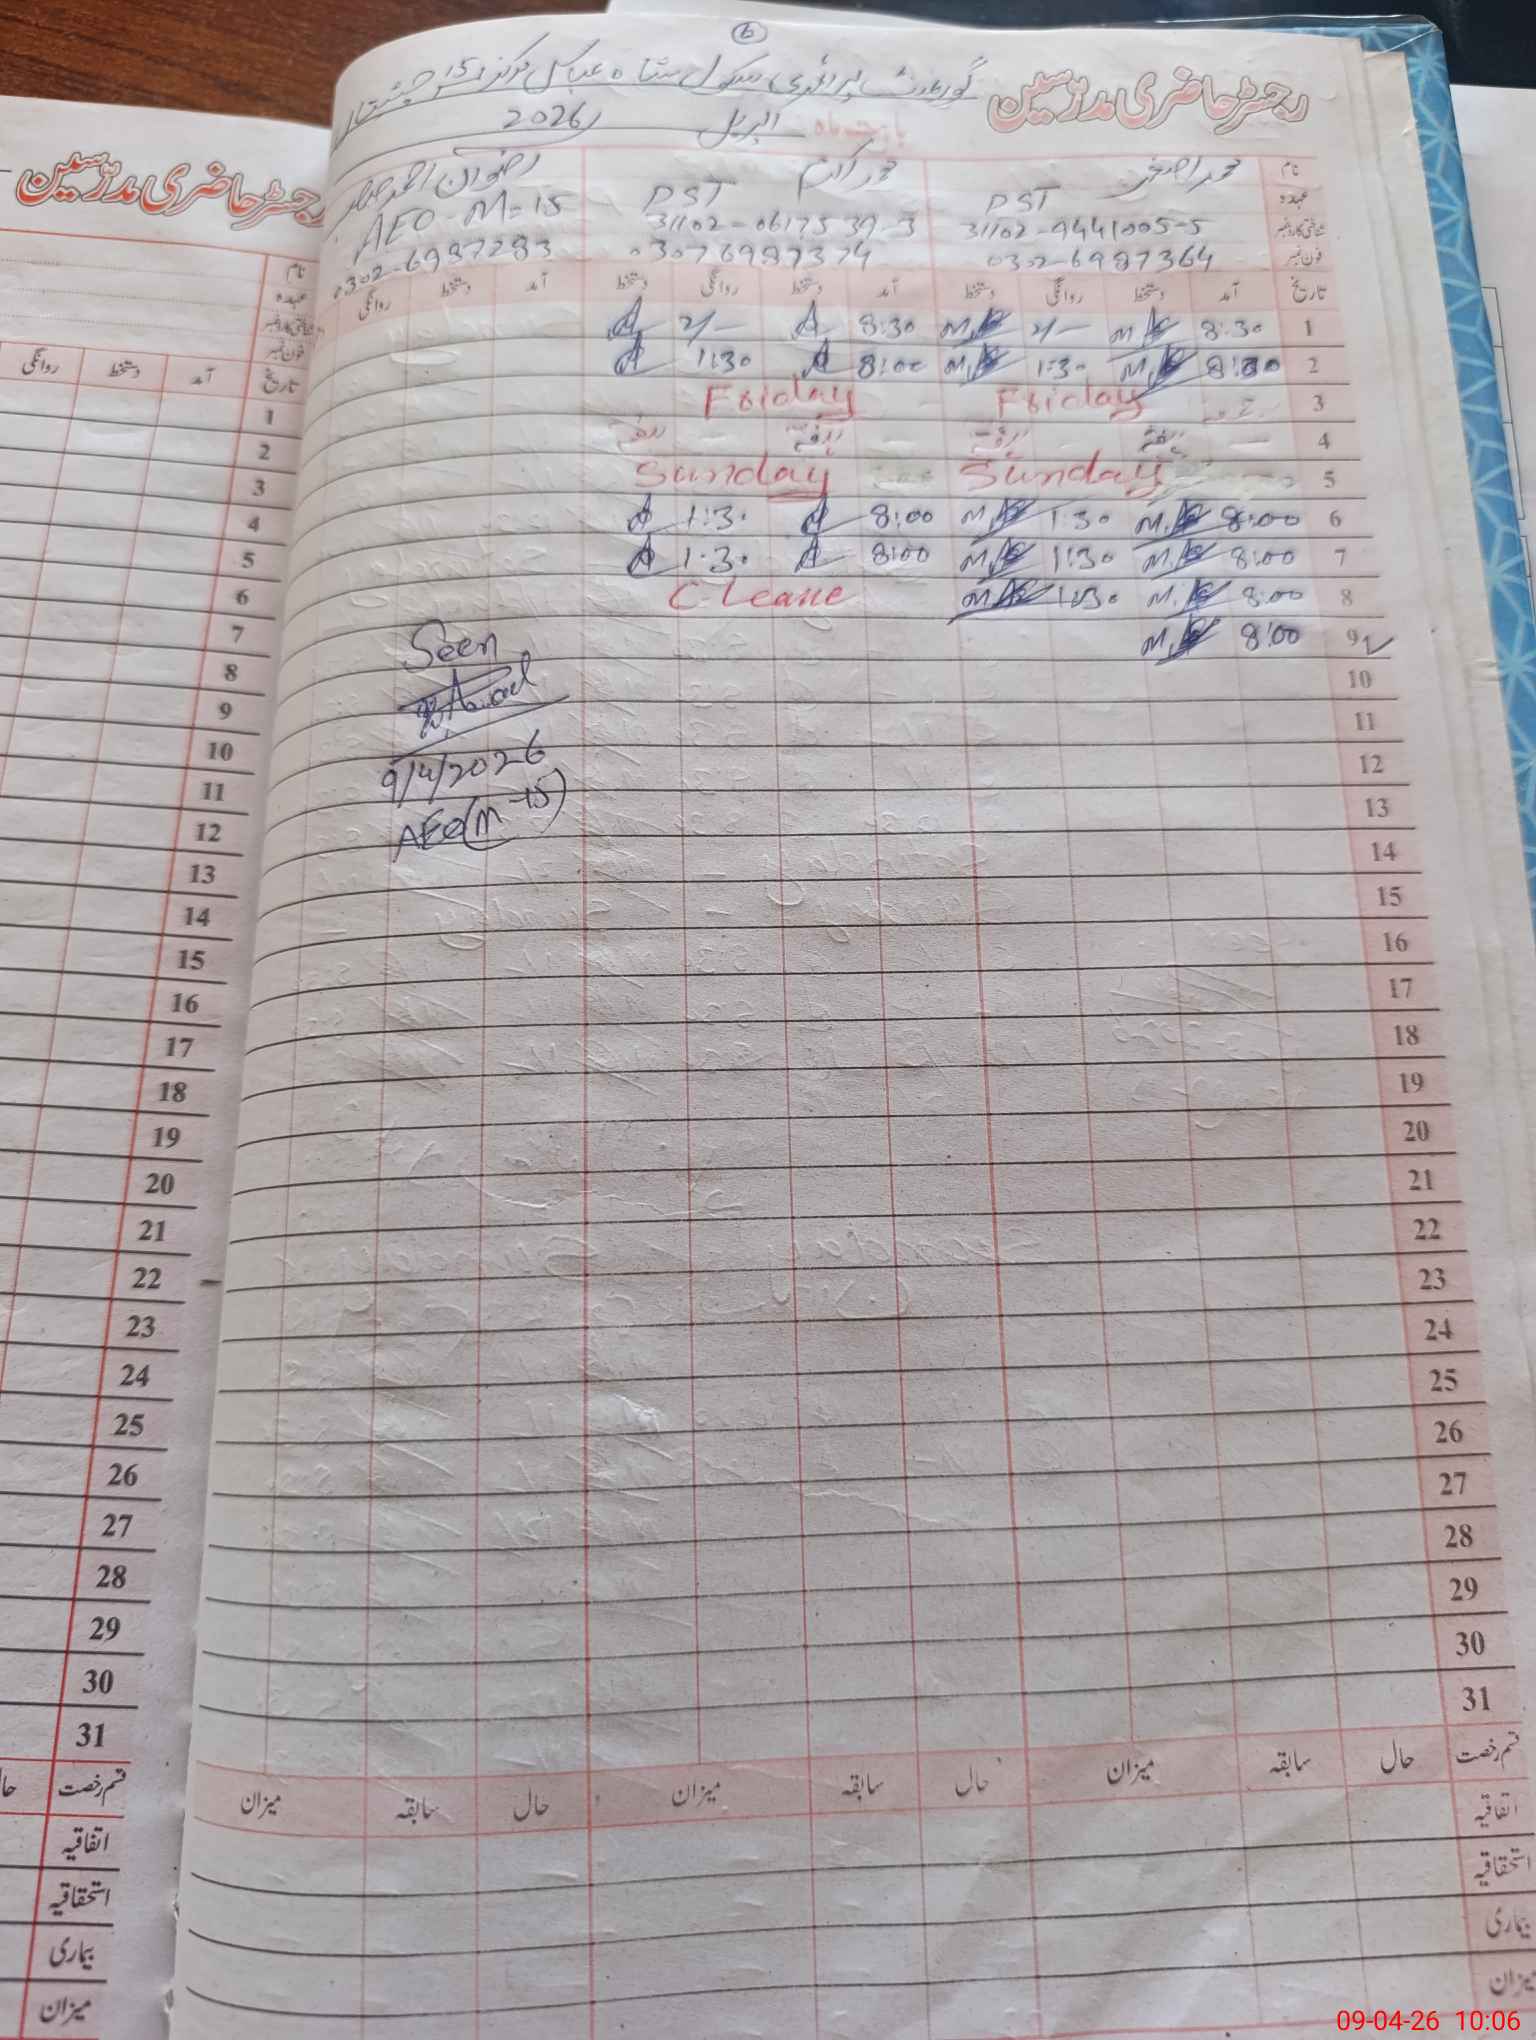 6
رجسٹر حاضری مدرّسین گورنمنٹ پرائمری سکول شاہ عباس
بابت ماہ اپریل 2026
نام محمد اصغر محمد اکرم رضوان احمد
عہدہ PST PST AEO-M-15
شناختی کارڈ نمبر 31102-9441005-5 31102-0617539-3
فون نمبر 0302-6987364 03076987374 0302-6987283
تاریخ آمد دستخط روانگی دستخط آمد دستخط روانگی دستخط آمد دستخط روانگی
1 8:30 2/- 8:30 2/-
2 1:30 8:00 1:30
3 Friday Friday
4
5 Sunday Sunday
6 8:00 1:30 8:00 1:30
7 8:00 1:30 8:00 1:30
8 8:00 1:30 C-Leave
9 8:00
Seen
9/4/2026
AEO(M-15)
10
11
12
13
14
15
16
17
18
19
20
21
22
23
24
25
26
27
28
29
30
31
قسم رخصت حال سابقہ میزان حال سابقہ میزان حال سابقہ میزان
اتفاقیہ
استحقاقیہ
بیماری
میزان
رجسٹر حاضری مدرّسین
نام
عہدہ
شناختی کارڈ نمبر
فون نمبر
تاریخ آمد دستخط روانگی
1
2
3
4
5
6
7
8
9
10
11
12
13
14
15
16
17
18
19
20
21
22
23
24
25
26
27
28
29
30
31
قسم رخصت
اتفاقیہ
استحقاقیہ
بیماری
میزان
09-04-26 10:06